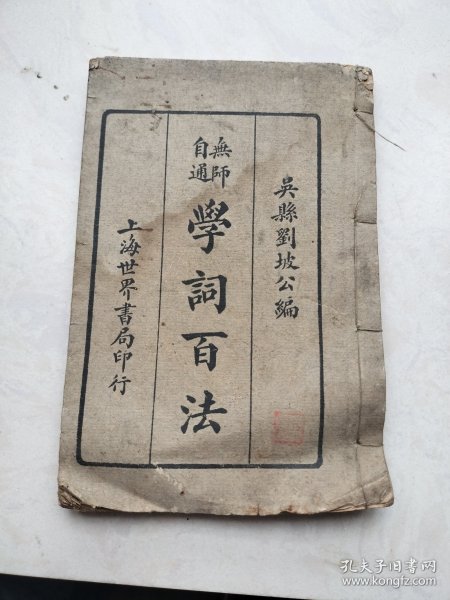 吳縣劉坡公編
無師
自通
學詞百法
上海世界書局印行
孔夫子旧书网
www.kongfz.com